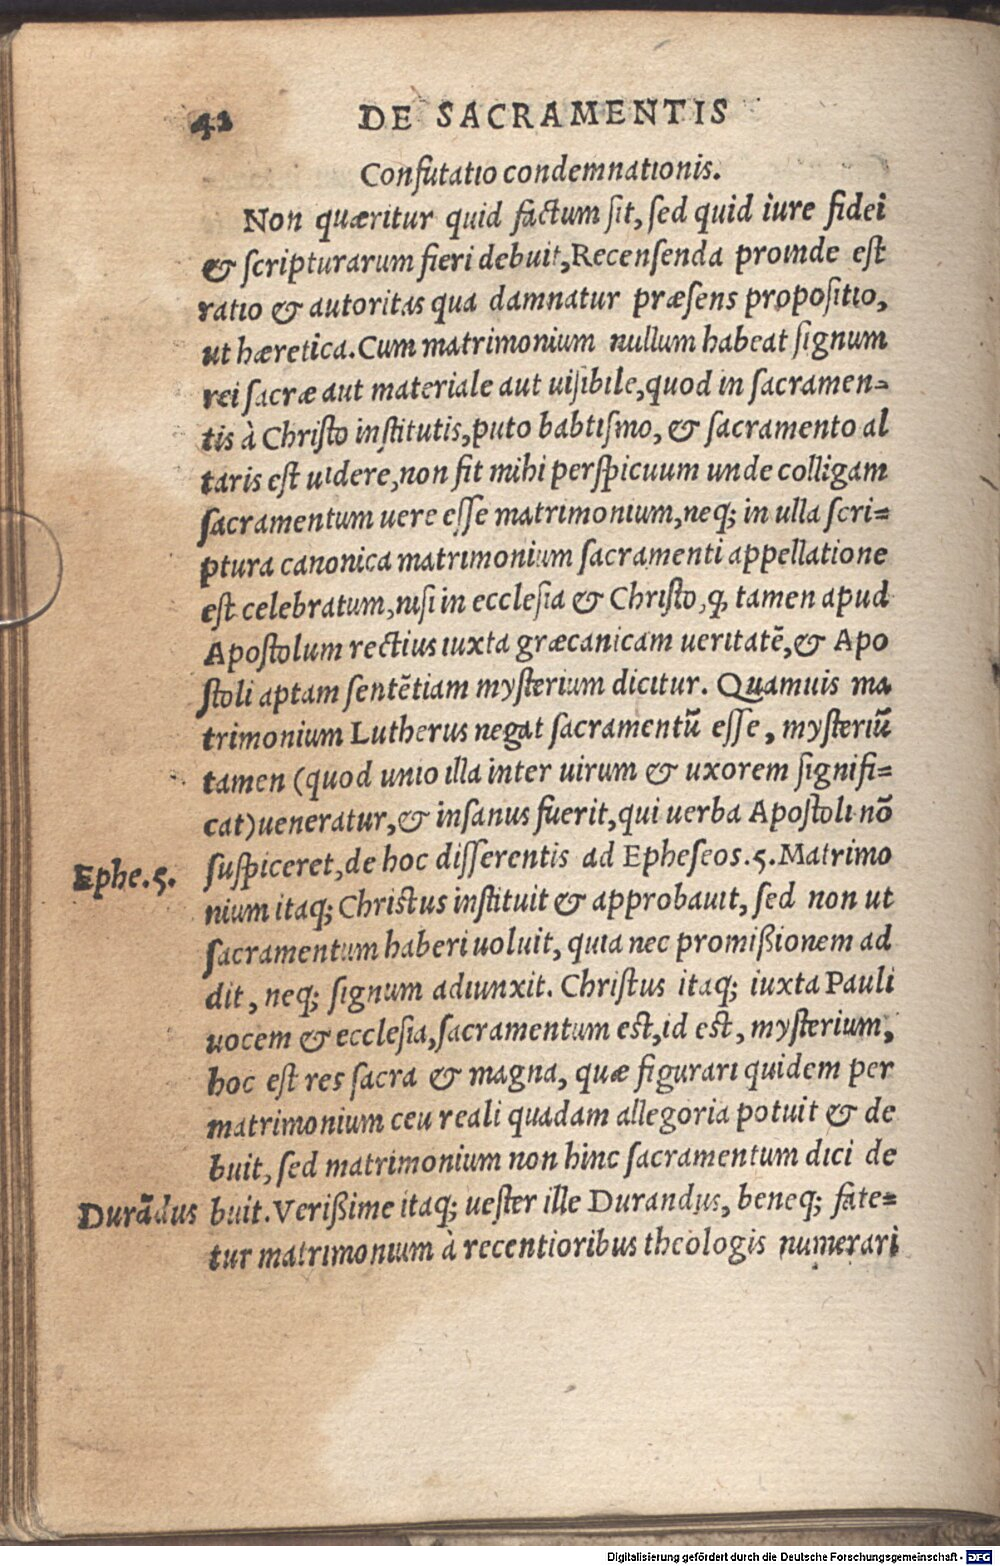 42 DE SACRAMENTIS
Confutatio condemnationis.
Non quæritur quid factum sit, sed quid iure fidei
& scripturarum fieri debuit, Recensenda proinde est
ratio & autoritas qua damnatur præsens propositio,
ut hæretica. Cum matrimonium nullum habeat signum
rei sacræ aut materiale aut uisibile, quod in sacramen=
tis à Christo institutis, puto babtismo, & sacramento al
taris est uidere, non fit mihi perspicuum unde colligam
sacramentum uere esse matrimonium, neq; in ulla scri=
ptura canonica matrimonium sacramenti appellatione
est celebratum, nisi in ecclesia & Christo, q, tamen apud
Apostolum rectius iuxta græcanicam ueritatē, & Apo
stoli aptam sentētiam mysterium dicitur. Quamuis ma
trimonium Lutherus negat sacramentū esse, mysteriū
tamen (quod unio illa inter uirum & uxorem signifi=
cat) ueneratur, & insanus fuerit, qui uerba Apostoli nō
Ephe. 5. suspiceret, de hoc disserentis ad Epheseos. 5. Matrimo
nium itaq; Christus instituit & approbauit, sed non ut
sacramentum haberi uoluit, quia nec promißionem ad
dit, neq; signum adiunxit. Christus itaq; iuxta Pauli
uocem & ecclesia, sacramentum est, id est, mysterium,
hoc est res sacra & magna, quæ figurari quidem per
matrimonium ceu reali quadam allegoria potuit & de
buit, sed matrimonium non hinc sacramentum dici de
Durādus buit. Verißime itaq; uester ille Durandus, beneq; fate=
tur matrimonium à recentioribus theologis numerari
Digitalisierung gefördert durch die Deutsche Forschungsgemeinschaft - DFG